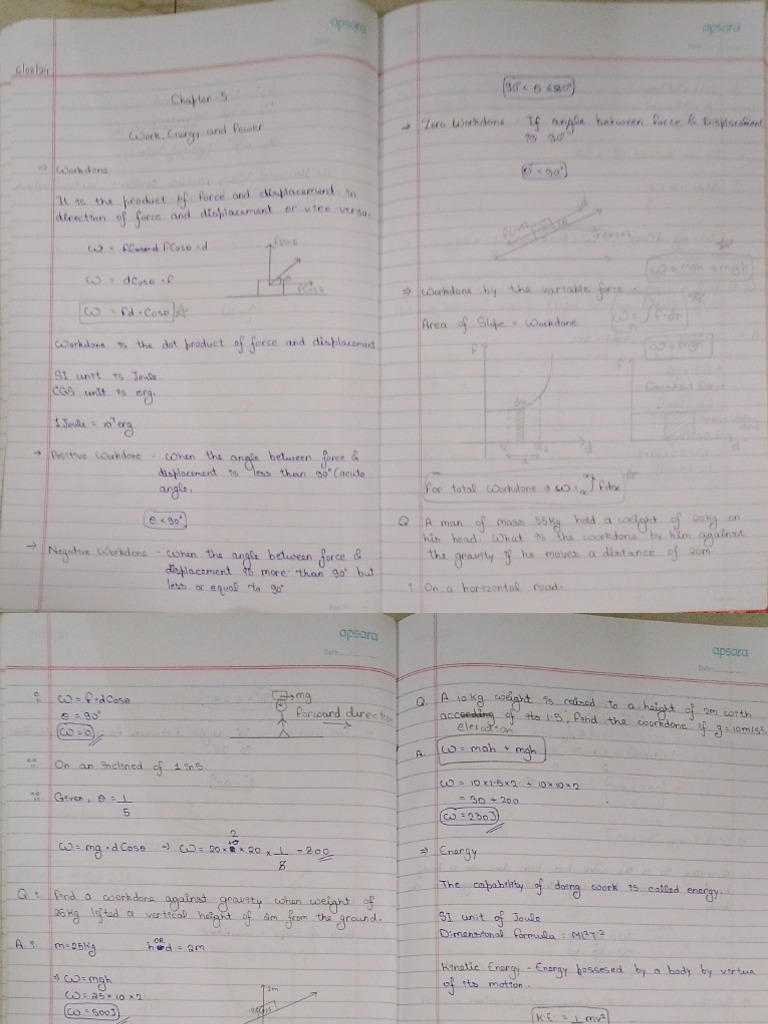 apsara
6/08/24
Chapter-5
Work, Energy and Power
⇒ Workdone
It is the product of force and displacement in
direction of force and displacement or vice versa.
W = FCosθ · d
W = dCosθ · F
W = Fd · Cosθ
FSinθ
FCosθ
Workdone is the dot product of force and displacement
SI unit is Joule.
CGS unit is erg.
1 Joule = 10⁷ erg
→ Positive Workdone - When the angle between force &
displacement is less than 90° (acute
angle.
θ < 90°
→ Negative Workdone - When the angle between force &
displacement is more than 90° but
less or equal to 90°
apsara
→ Zero Workdone - If angle between force & Displacement
is 90°
θ = 90°
W = mah + mgh
⇒ Workdone by the variable force -
Area of Slope = Workdone
W = mgh
F
d
F
d
for total workdone ⇒ W = ∫ F·dx
Q A man of mass 55kg hold a weight of 20kg on
his head. What is the workdone by him against
the gravity if he moves a distance of 20m.
i On a horizontal road.
apsara
Date
W = F·dCosθ
θ = 90°
W = 0
mg
forward direction
On an inclined of 1 in 5.
Given, θ = 1/5
W = mg · dCosθ ⇒ W = 20 × 10 × 20 × 1/5 - 800
Q: Find a workdone against gravity when weight of
25kg lifted a vertical height of 2m from the ground.
A: m = 25kg h OR d = 2m
⇒ W = mgh
W = 25 × 10 × 2
W = 500J
2m
apsara
Date
Q. A 10kg weight is raised to a height of 2m with
acceleration of its 1.5, find the workdone if g = 10m/s².
A. W = mah + mgh
W = 10 × 1.5 × 2 + 10 × 10 × 2
= 30 + 200
W = 230J
⇒ Energy
The capability of doing work is called energy.
SI unit of Joule
Dimensional formula = ML²T⁻²
Kinetic Energy - Energy possesed by a body by virtue
of its motion.
KE = 1 mv²